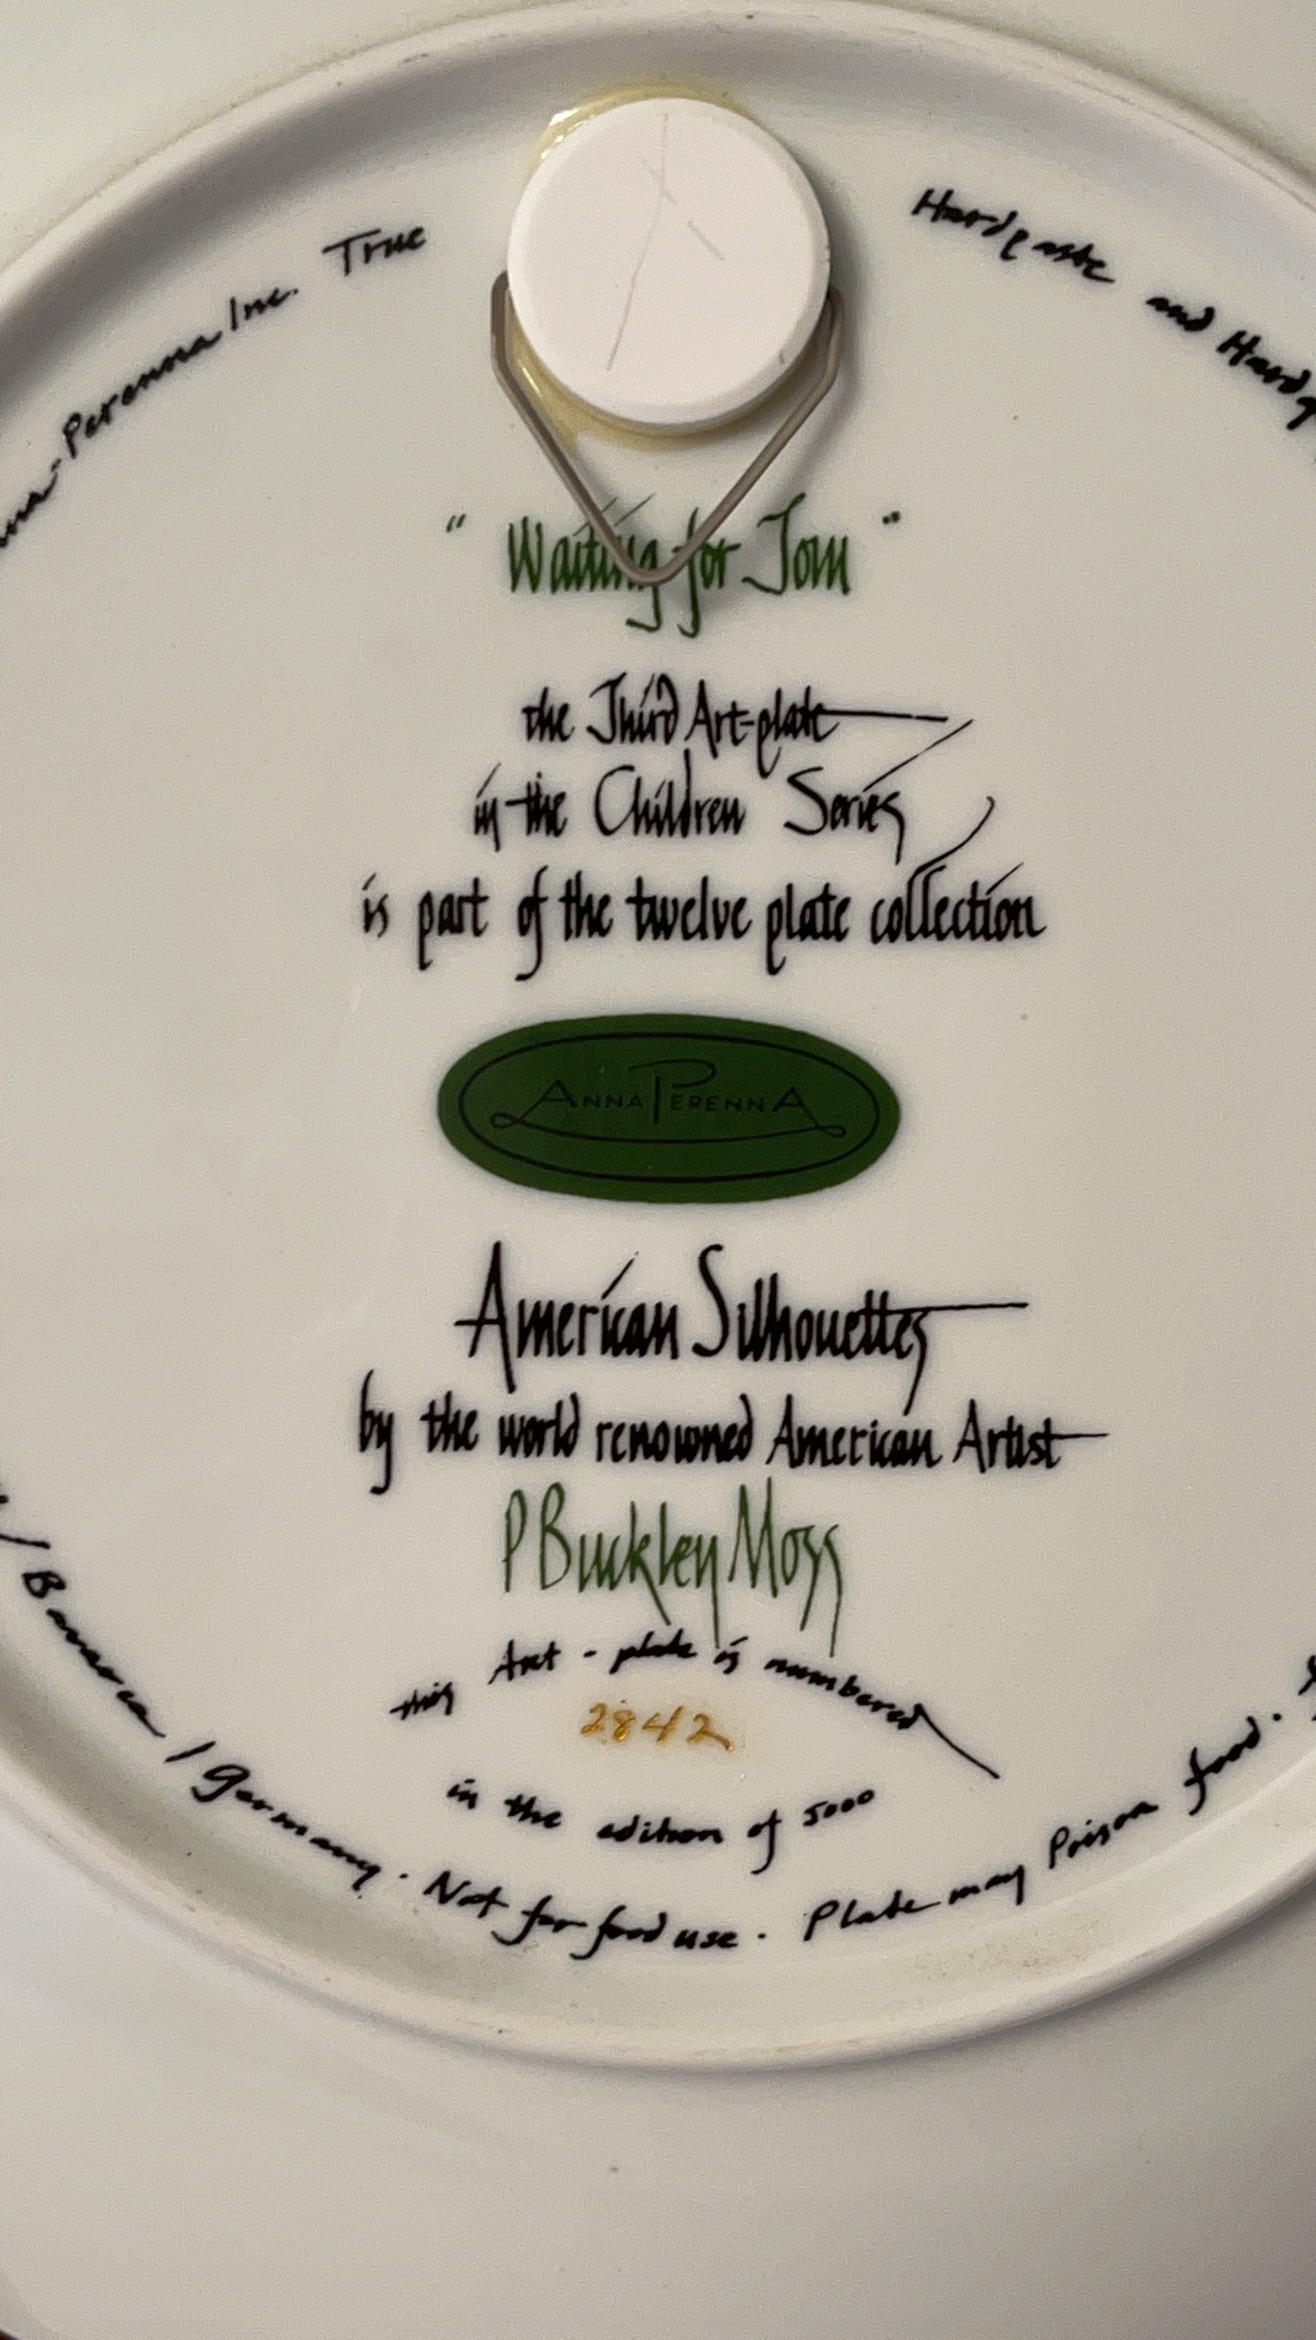 -Perenna Inc. True
Hardpaste and Hard
" Waiting for Tom "
the Third Art-plate
in the Children Series
is part of the twelve plate collection
ANNA PERENNA
American Silhouettes
by the world renowned American Artist
P Buckley Moss
this Art - plate is numbered
2842
in the edition of 5000
/ Bavaria / Germany . Not for food use . Plate may Poison food .